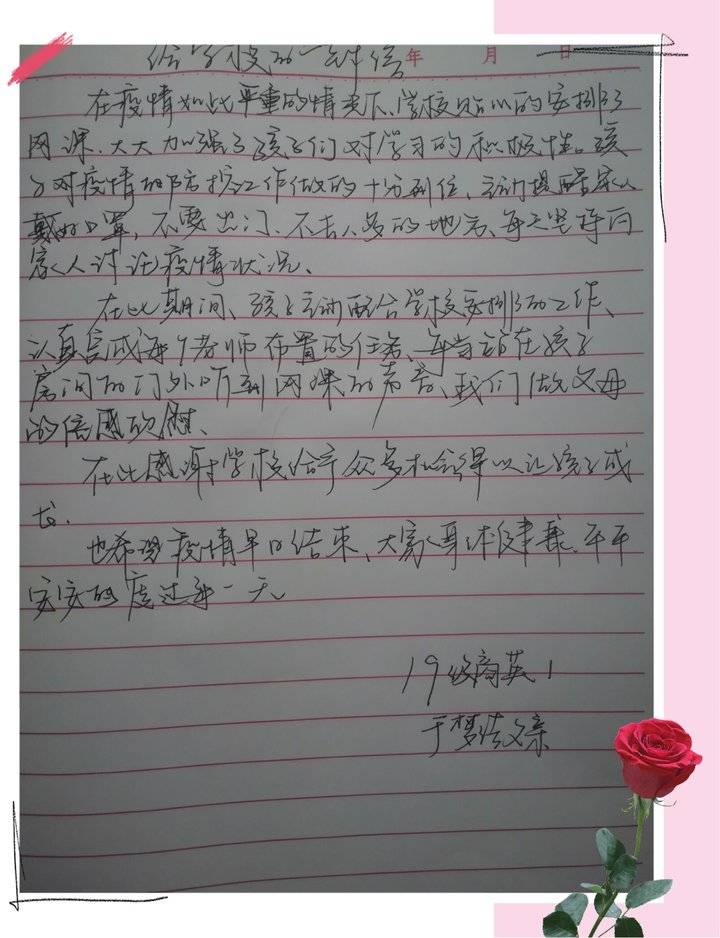 给学校的一封信
年 月 日
在疫情如此严重的情况下、学校贴心的安排了
网课、大大加强了孩子们对学习的积极性。孩
子对疫情的防护工作做的十分到位、主动提醒家人
戴好口罩，不要出门、不去人多的地方、每天坚持向
家人讨论疫情状况、
在此期间、孩子主动配合学校安排的工作、
认真完成每个老师布置的任务、每当站在孩子
房间的门外听到网课的声音、我们做父母
的倍感欣慰、
在此感谢学校给予众多机会得以让孩子成
长.
也希望疫情早日结束、大家身体健康、平平
安安的度过每一天
19级商英1
于梦洁父亲